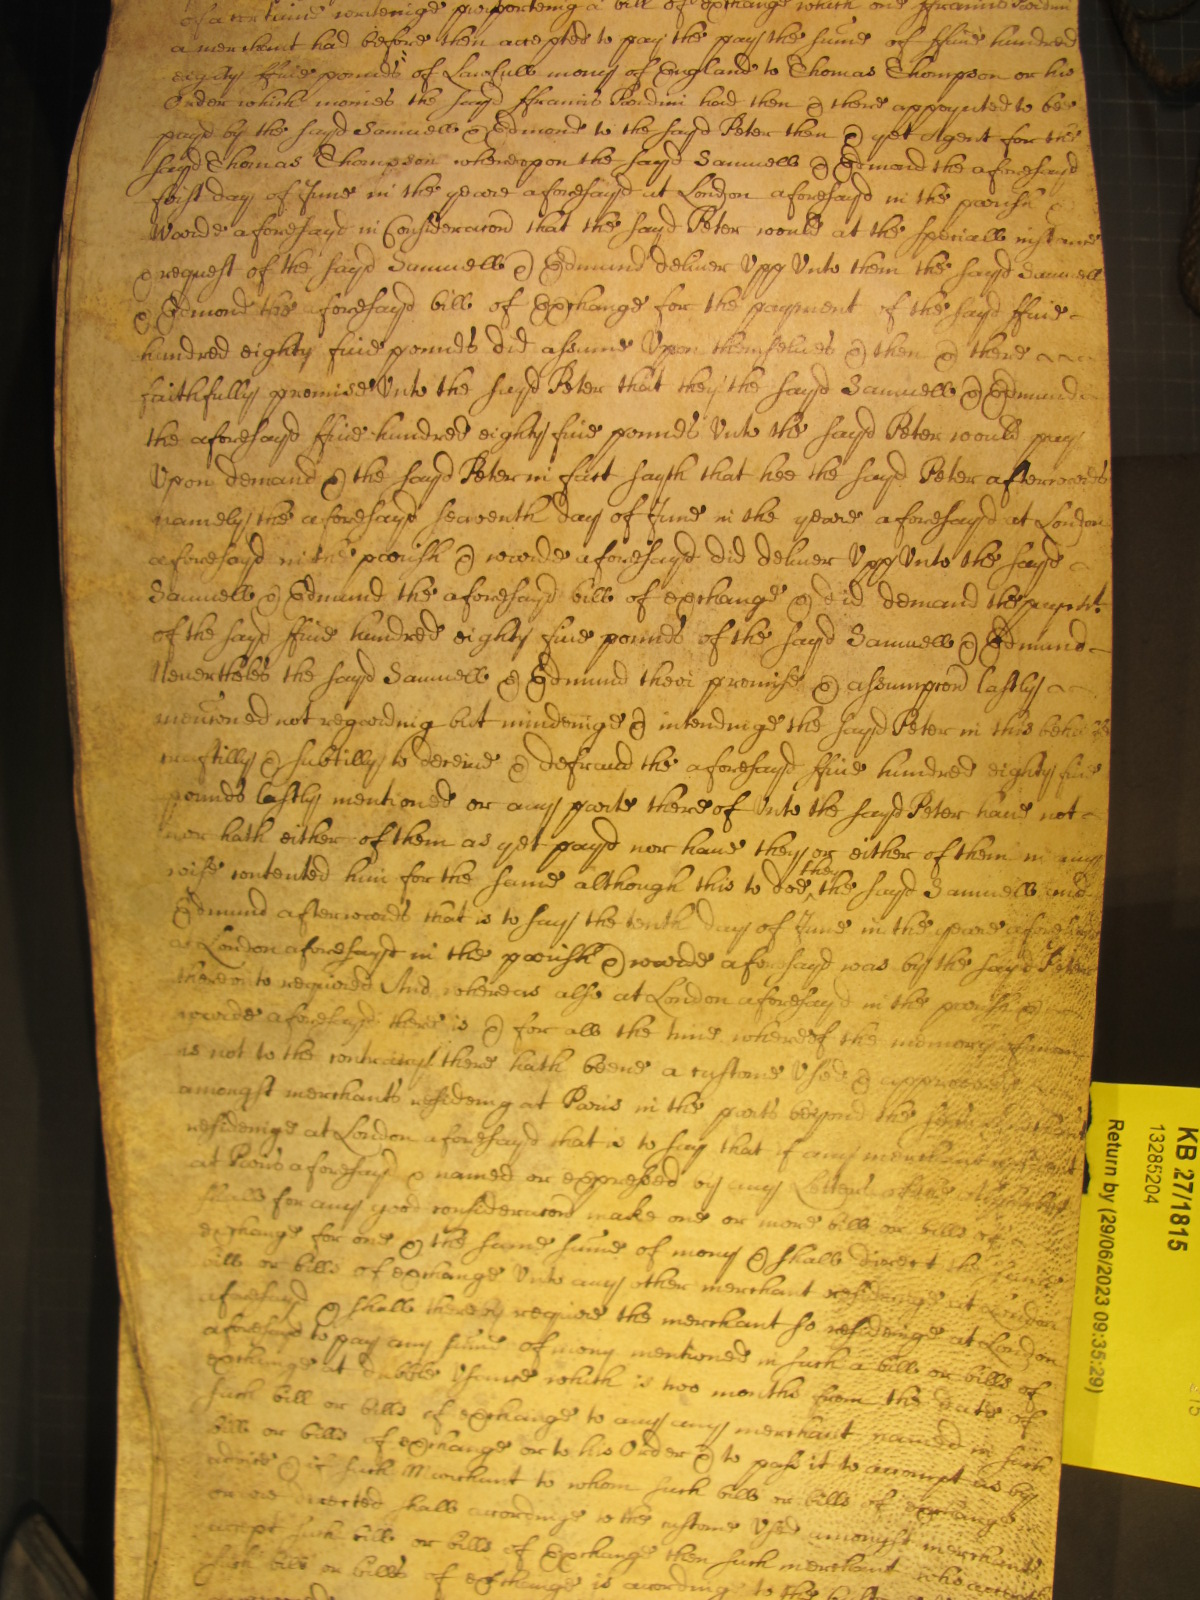 of a certaine writeinge purporteing a bill of exchange which one ffrancis
a merchant had before then accepted to pay the pay the sume of ffiue hundred
eighty ffiue pounds of Lawfull mony of England to Thomas Thompson or his
Order which monies the sayd ffrancis had then & there appoynted to be
payd by the sayd Samuell & Edmond to the sayd Peter then & yet Agent for the
sayd Thomas Thompson whereupon the sayd Samuell & Edmond the aforesayd
first day of June in the yeare aforesayd at London aforesayd in the parish &
Warde aforesayd in Consideracion that the sayd Peter would at the speciall instance
& request of the sayd Samuell & Edmund deliuer Upp Unto them the sayd Samuell
& Edmond the aforesayd bill of Exchange for the payment of the sayd ffiue
hundred eighty fiue pounds did assume Upon themselues & then & there
faithfully promise Unto the sayd Peter that they the sayd Samuell & Edmund
the aforesayd ffiue hundred eighty fiue pounds Unto the sayd Peter would pay
Upon demand & the sayd Peter in fact sayth that hee the sayd Peter afterwards
namely the aforesayd seaventh day of June in the yeare aforesayd at London
aforesayd in the parish & warde aforesayd did deliuer Upp Unto the sayd
Samuell & Edmund the aforesayd bill of exchange & did demand the paymt
of the sayd ffiue hundred eighty fiue pounds of the sayd Samuell & Edmund
Neuertheles the sayd Samuell & Edmund theire promise & assumpcion lastly
mencioned not regarding but mindeinge & intendinge the sayd Peter in this behalfe
craftilly & subtilly to deceiue & defraud the aforesayd ffiue hundred eighty fiue
pounds lastly mentioned or any parte thereof Unto the sayd Peter haue not
nor hath either of them as yet payd nor haue they or either of them in any
wise contented him for the same although this to doe they the sayd Samuell and
Edmund afterwards that is to say the tenth day of June in the yeare aforesayd
at London aforesayd in the parish & warde aforesayd was by the sayd Peter
thereunto required And whereas also at London aforesayd in the parish &
warde aforesayd there is & for all the time whereof the memory of man
is not to the contrary there hath beene a custome Used & approved
amongst merchants resideing at Paris in the parts beyond the seas & merchants
resideinge at London aforesayd that is to say that if any merchant resideing
at Paris aforesayd & named or expressed by any
shall for any good consideracion make one or more bill or bills of
exchange for one & the same sume of mony & shall direct the same
bill or bills of exchange Unto any other merchant resideinge at London
aforesayd & shall thereby require the merchant so resideinge at London
aforesayd to pay any sume of mony mentioned in such a bill or bills of
exchange at dubble Usance which is two months from the date of
such bill or bills of exchange to any any merchant named in such
bill or bills of exchange or to his Order & to pass it to accompt as by
advice & if such Merchant to whom such bill or bills of exchange
or are directed shall accordinge to the custome Used amongst merchants
accept such bill or bills of Exchange then such merchant who accepts
such bill or bills of exchange is accordinge to the
KB 27/1815
13285204
Return by (29/06/2023 09:35:29)